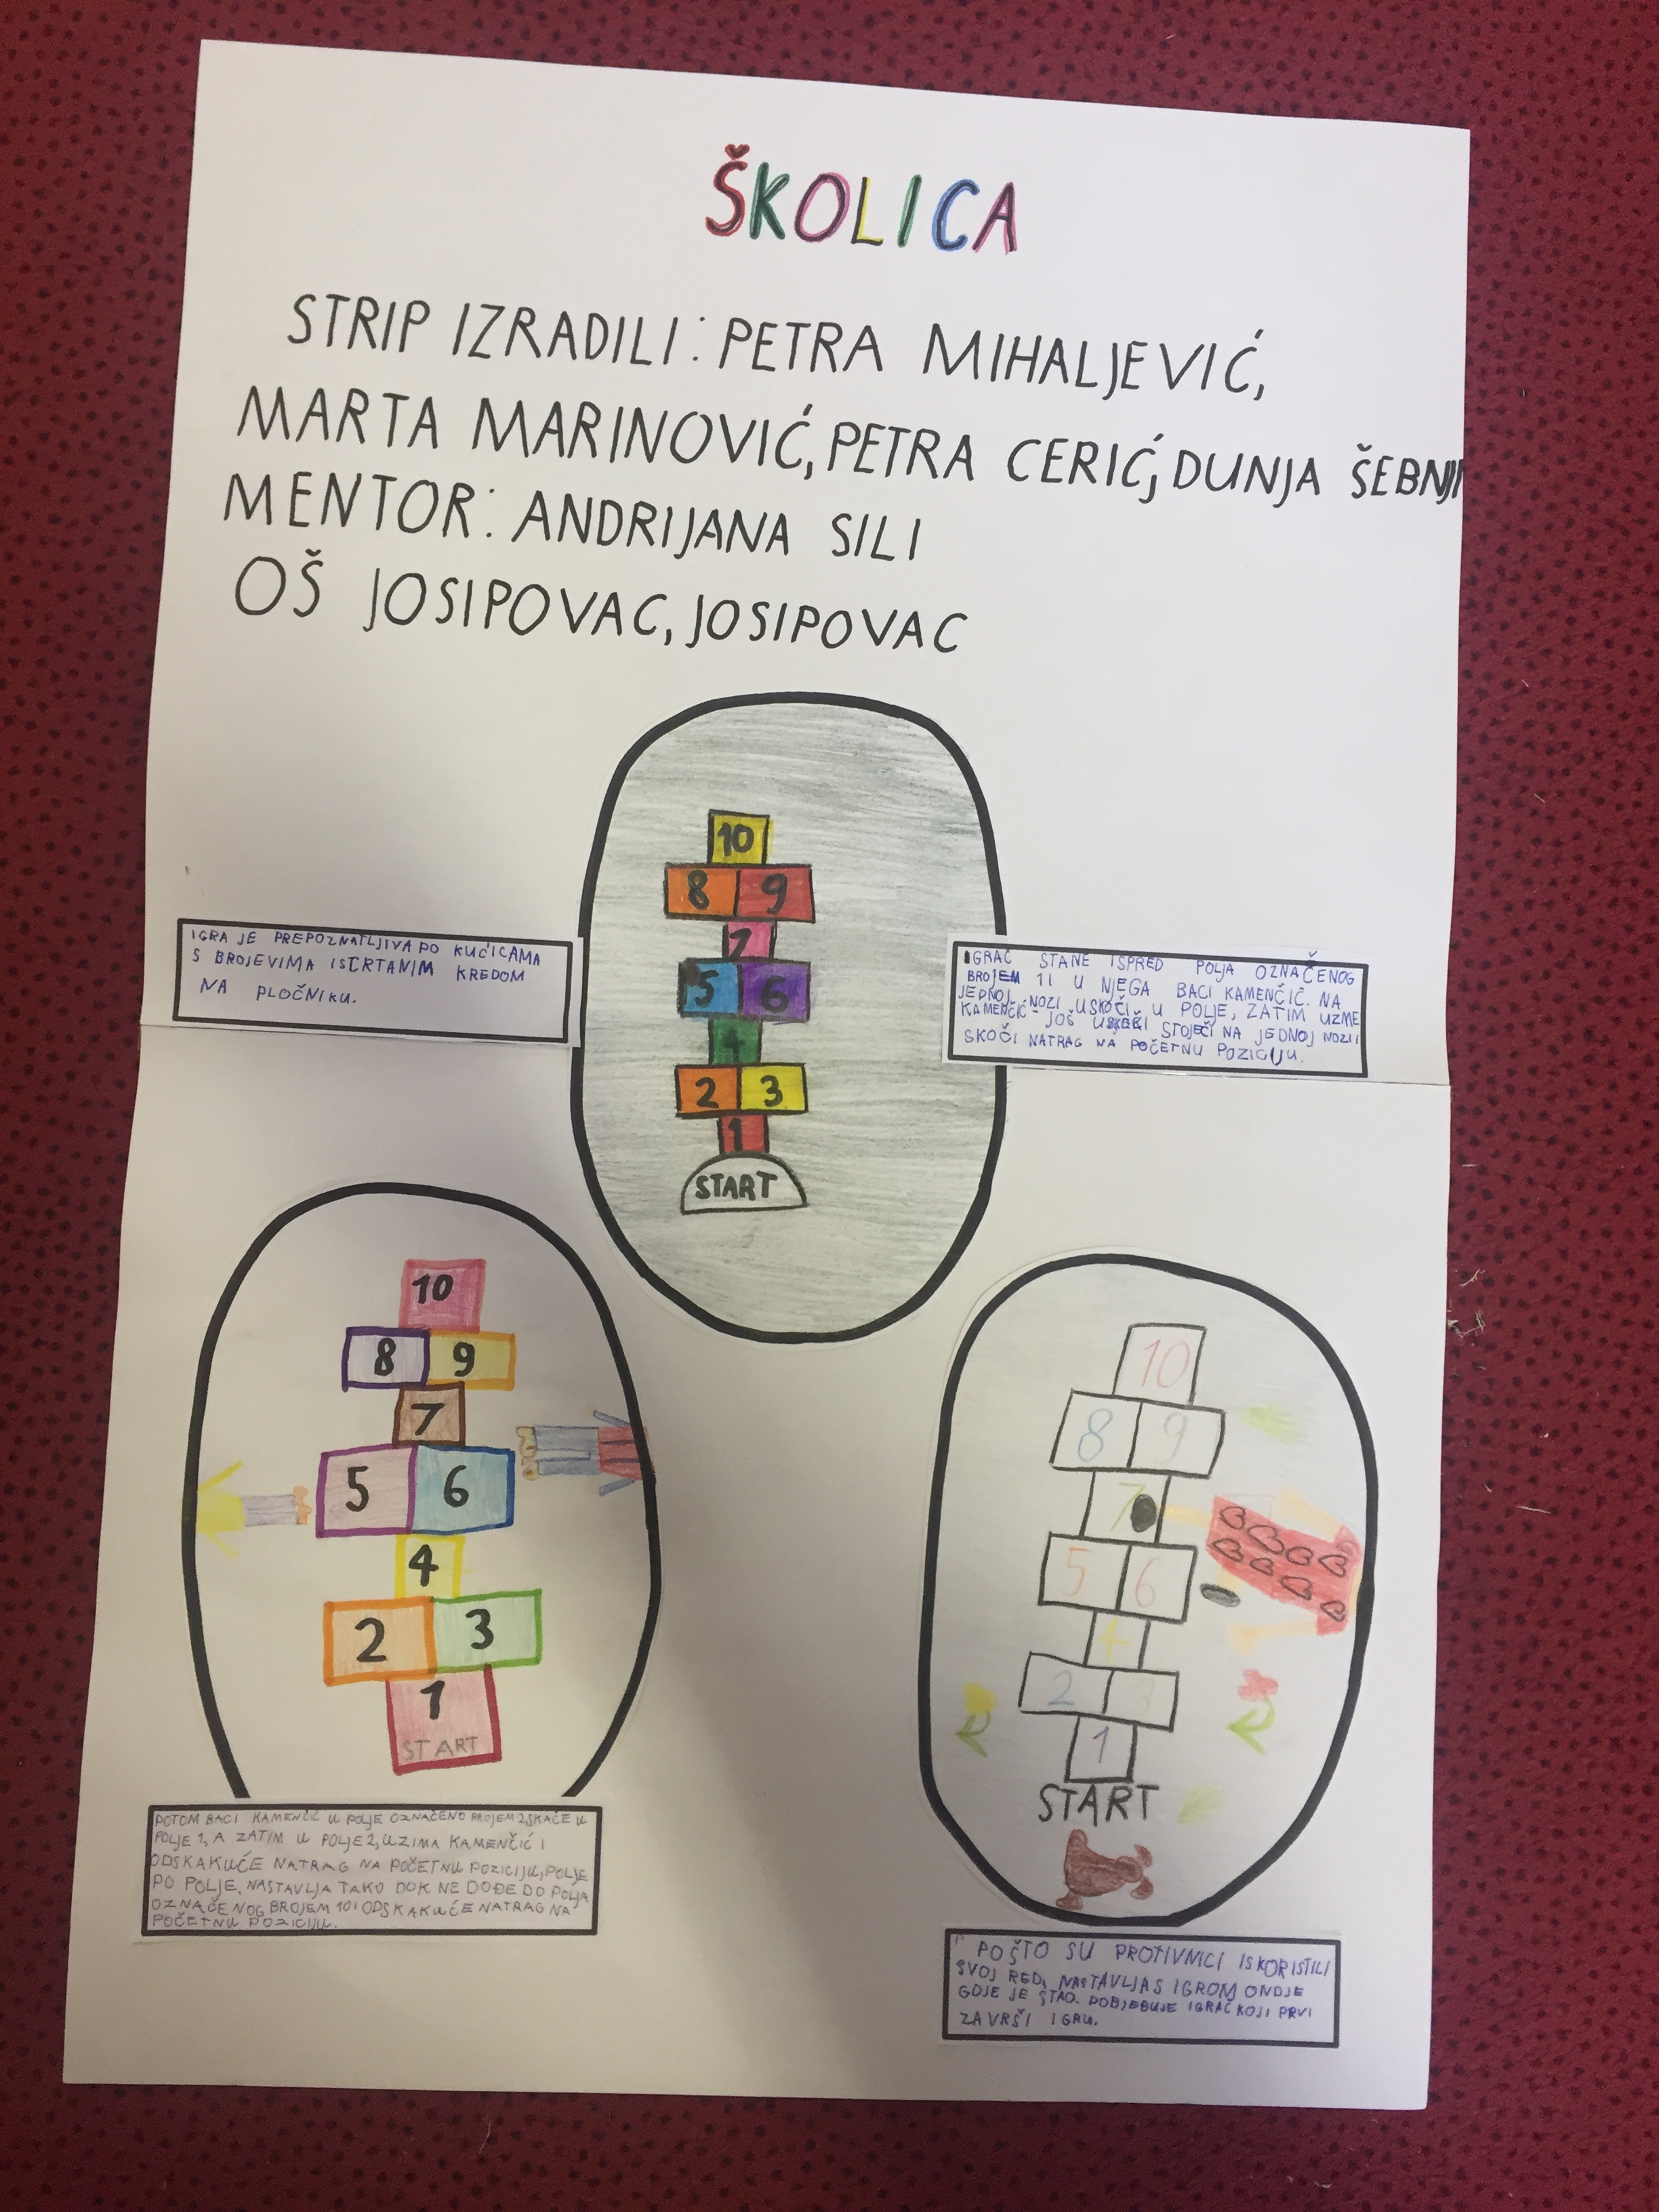 ŠKOLICA
STRIP IZRADILI: PETRA MIHALJEVIĆ,
MARTA MARINOVIĆ, PETRA CERIĆ, DUNJA
MENTOR: ANDRIJANA SILI
OŠ JOSIPOVAC, JOSIPOVAC
IGRA JE PREPOZNATLJIVA PO KUĆICAMA
S BROJEVIMA ISCRTANIM KREDOM
NA PLOČNIKU.
10
8 9
7
5 6
4
2 3
1
START
IGRAČ STANE ISPRED POLJA OZNAČENOG
BROJEM 1 I U NJEGA BACI KAMENČIĆ. NA
JEDNOJ NOZI USKOČI U POLJE, ZATIM UZME
KAMENČIĆ - JOŠ STOJEĆI NA JEDNOJ NOZI I
SKOČI NATRAG NA POČETNU POZICIJU.
10
8 9
7
5 6
4
2 3
1
START
POTOM BACI KAMENČIĆ U POLJE OZNAČENO BROJEM 2, SKAČE U
POLJE 1, A ZATIM U POLJE 2, UZIMA KAMENČIĆ I
ODSKAKUĆE NATRAG NA POČETNU POZICIJU, POLJE
PO POLJE. NASTAVLJA TAKO DOK NE DOĐE DO POLJA
OZNAČENOG BROJEM 10 I ODSKAKUĆE NATRAG NA
POČETNU POZICIJU.
10
8 9
7
5 6
4
2 3
1
START
POŠTO SU PROTIVNICI ISKORISTILI
SVOJ RED, NASTAVLJA S IGROM ONDJE
GDJE JE STAO. POBJEĐUJE IGRAČ KOJI PRVI
ZAVRŠI IGRU.